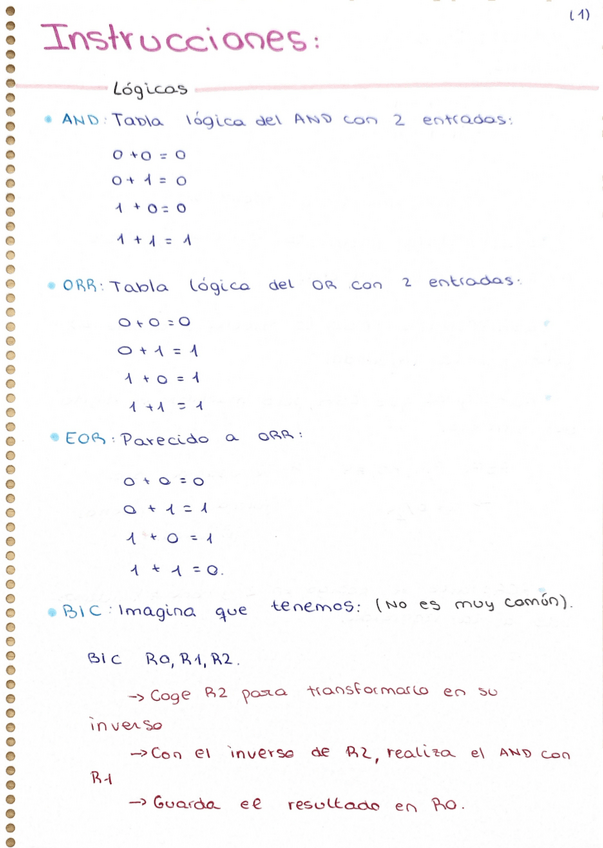 (1)
Instrucciones:
Lógicas
• AND: Tabla lógica del AND con 2 entradas:
0 + 0 = 0
0 + 1 = 0
1 + 0 = 0
1 + 1 = 1
• ORR: Tabla lógica del OR con 2 entradas:
0 + 0 = 0
0 + 1 = 1
1 + 0 = 1
1 + 1 = 1
• EOR: Parecido a ORR:
0 + 0 = 0
0 + 1 = 1
1 + 0 = 1
1 + 1 = 0.
• BIC: Imagina que tenemos: (No es muy común).
BIC R0, R1, R2.
→ Coge R2 para transformarlo en su
inverso
→ Con el inverso de R2, realiza el AND con
R1
→ Guarda el resultado en R0.